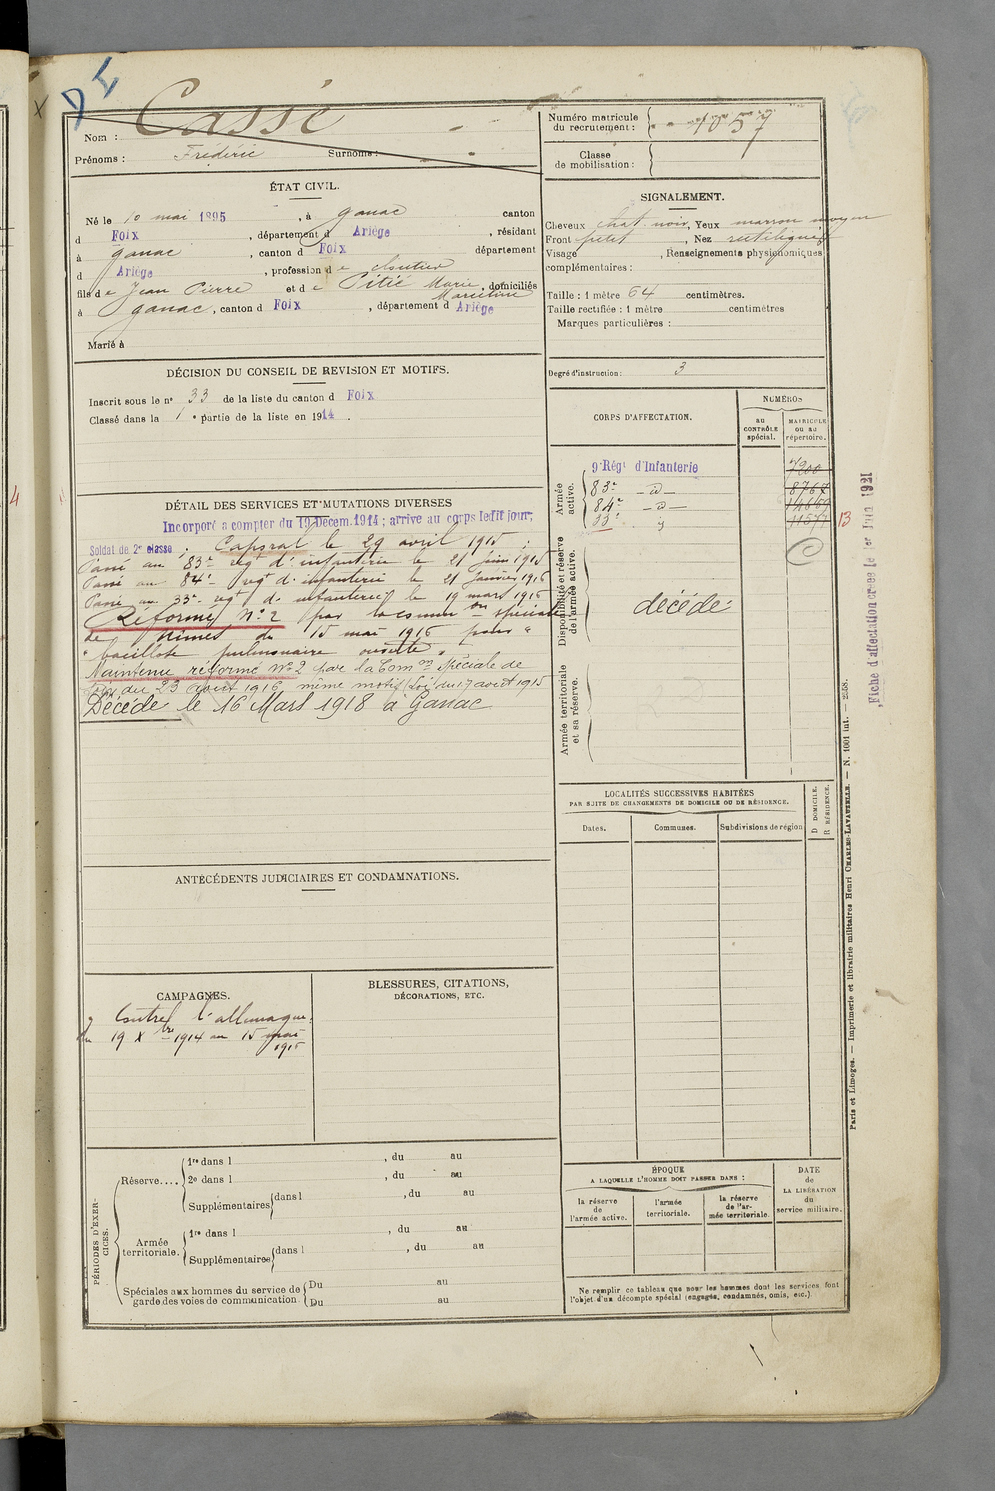 DE
Cassé
Nom :
Prénoms : Frédéric Surnoms :
Numéro matricule
du recrutement : 1057
Classe
de mobilisation :
ÉTAT CIVIL.
Né le 10 mai 1895, à Ganac canton
d Foix, département d Ariège, résidant
à Ganac, canton d Foix département
d Ariège, profession d e cloutier
fils d e Jean Pierre et d e Pitié Marie, domiciliés
Marceline
à Ganac, canton d Foix, département d Ariège
Marié à
SIGNALEMENT.
Cheveux chat. noir, Yeux marron moyen
Front petit, Nez rectiligne
Visage , Renseignements physionomiques
complémentaires :
Taille : 1 mètre 64 centimètres.
Taille rectifiée : 1 mètre centimètres
Marques particulières :
Degré d'instruction : 3
DÉCISION DU CONSEIL DE REVISION ET MOTIFS.
Inscrit sous le nº 33 de la liste du canton d Foix
Classé dans la 1e partie de la liste en 1914.
DÉTAIL DES SERVICES ET MUTATIONS DIVERSES
Incorporé a compter du 19 Decem. 1914 ; arrivé au corps ledit jour,
Soldat de 2e classe ; Caporal le 29 avril 1915 ;
Passé au 83e regt d'infanterie le 21 juin 1915
Passé au 84e regt d'infanterie le 21 janvier 1916
Passé au 33e regt d'infanterie le 19 mars 1916
Réformé Nº 2 par la common spéciale
de Nimes du 15 mai 1916 pour "
" bacillose pulmonaire ouverte "
Maintenu réformé Nº 2 par la Comon Spéciale de
Foix du 23 août 1916 même motif (Loi du 17 août 1915
Décédé le 16 Mars 1918 à Ganac
CORPS D'AFFECTATION.
NUMÉROS
au
CONTRÔLE
spécial.
MATRICULE
ou au
répertoire.
Armée
active.
9e Régt d'Infanterie 7200
83e — d — 8767
84e — d — 14669
33e d 11577 13
Disponibilité et réserve
de l'armée active.
décédé
Armée territoriale
et sa réserve.
Fiche d'affectation créée le 1er Juin 1921
LOCALITÉS SUCCESSIVES HABITÉES
PAR SUITE DE CHANGEMENTS DE DOMICILE OU DE RÉSIDENCE.
Dates. Communes. Subdivisions de région
D DOMICILE.
R RÉSIDENCE.
ANTÉCÉDENTS JUDICIAIRES ET CONDAMNATIONS.
CAMPAGNES.
Contre l'allemagne.
du 19 Xbre 1914 au 15 mai
1916
BLESSURES, CITATIONS,
DÉCORATIONS, ETC.
PÉRIODES D'EXER-
CICES.
Réserve....
1re dans l , du au
2e dans l , du au
Supplémentaires dans l , du au
Armée
territoriale.
1re dans l , du au
Supplémentaires dans l , du au
Spéciales aux hommes du service de
garde des voies de communication
Du au
Du au
ÉPOQUE
A LAQUELLE L'HOMME DOIT PASSER DANS :
la réserve
de
l'armée active.
l'armée
territoriale.
la réserve
de l'ar-
mée territoriale.
DATE
de
LA LIBÉRATION
du
service militaire.
Ne remplir ce tableau que pour les hommes dont les services font
l'objet d'un décompte spécial (engagés, condamnés, omis, etc.)
Paris et Limoges. — Imprimerie et librairie militaires Henri CHARLES-LAVAUZELLE. — N. 1001 int. — 2558.